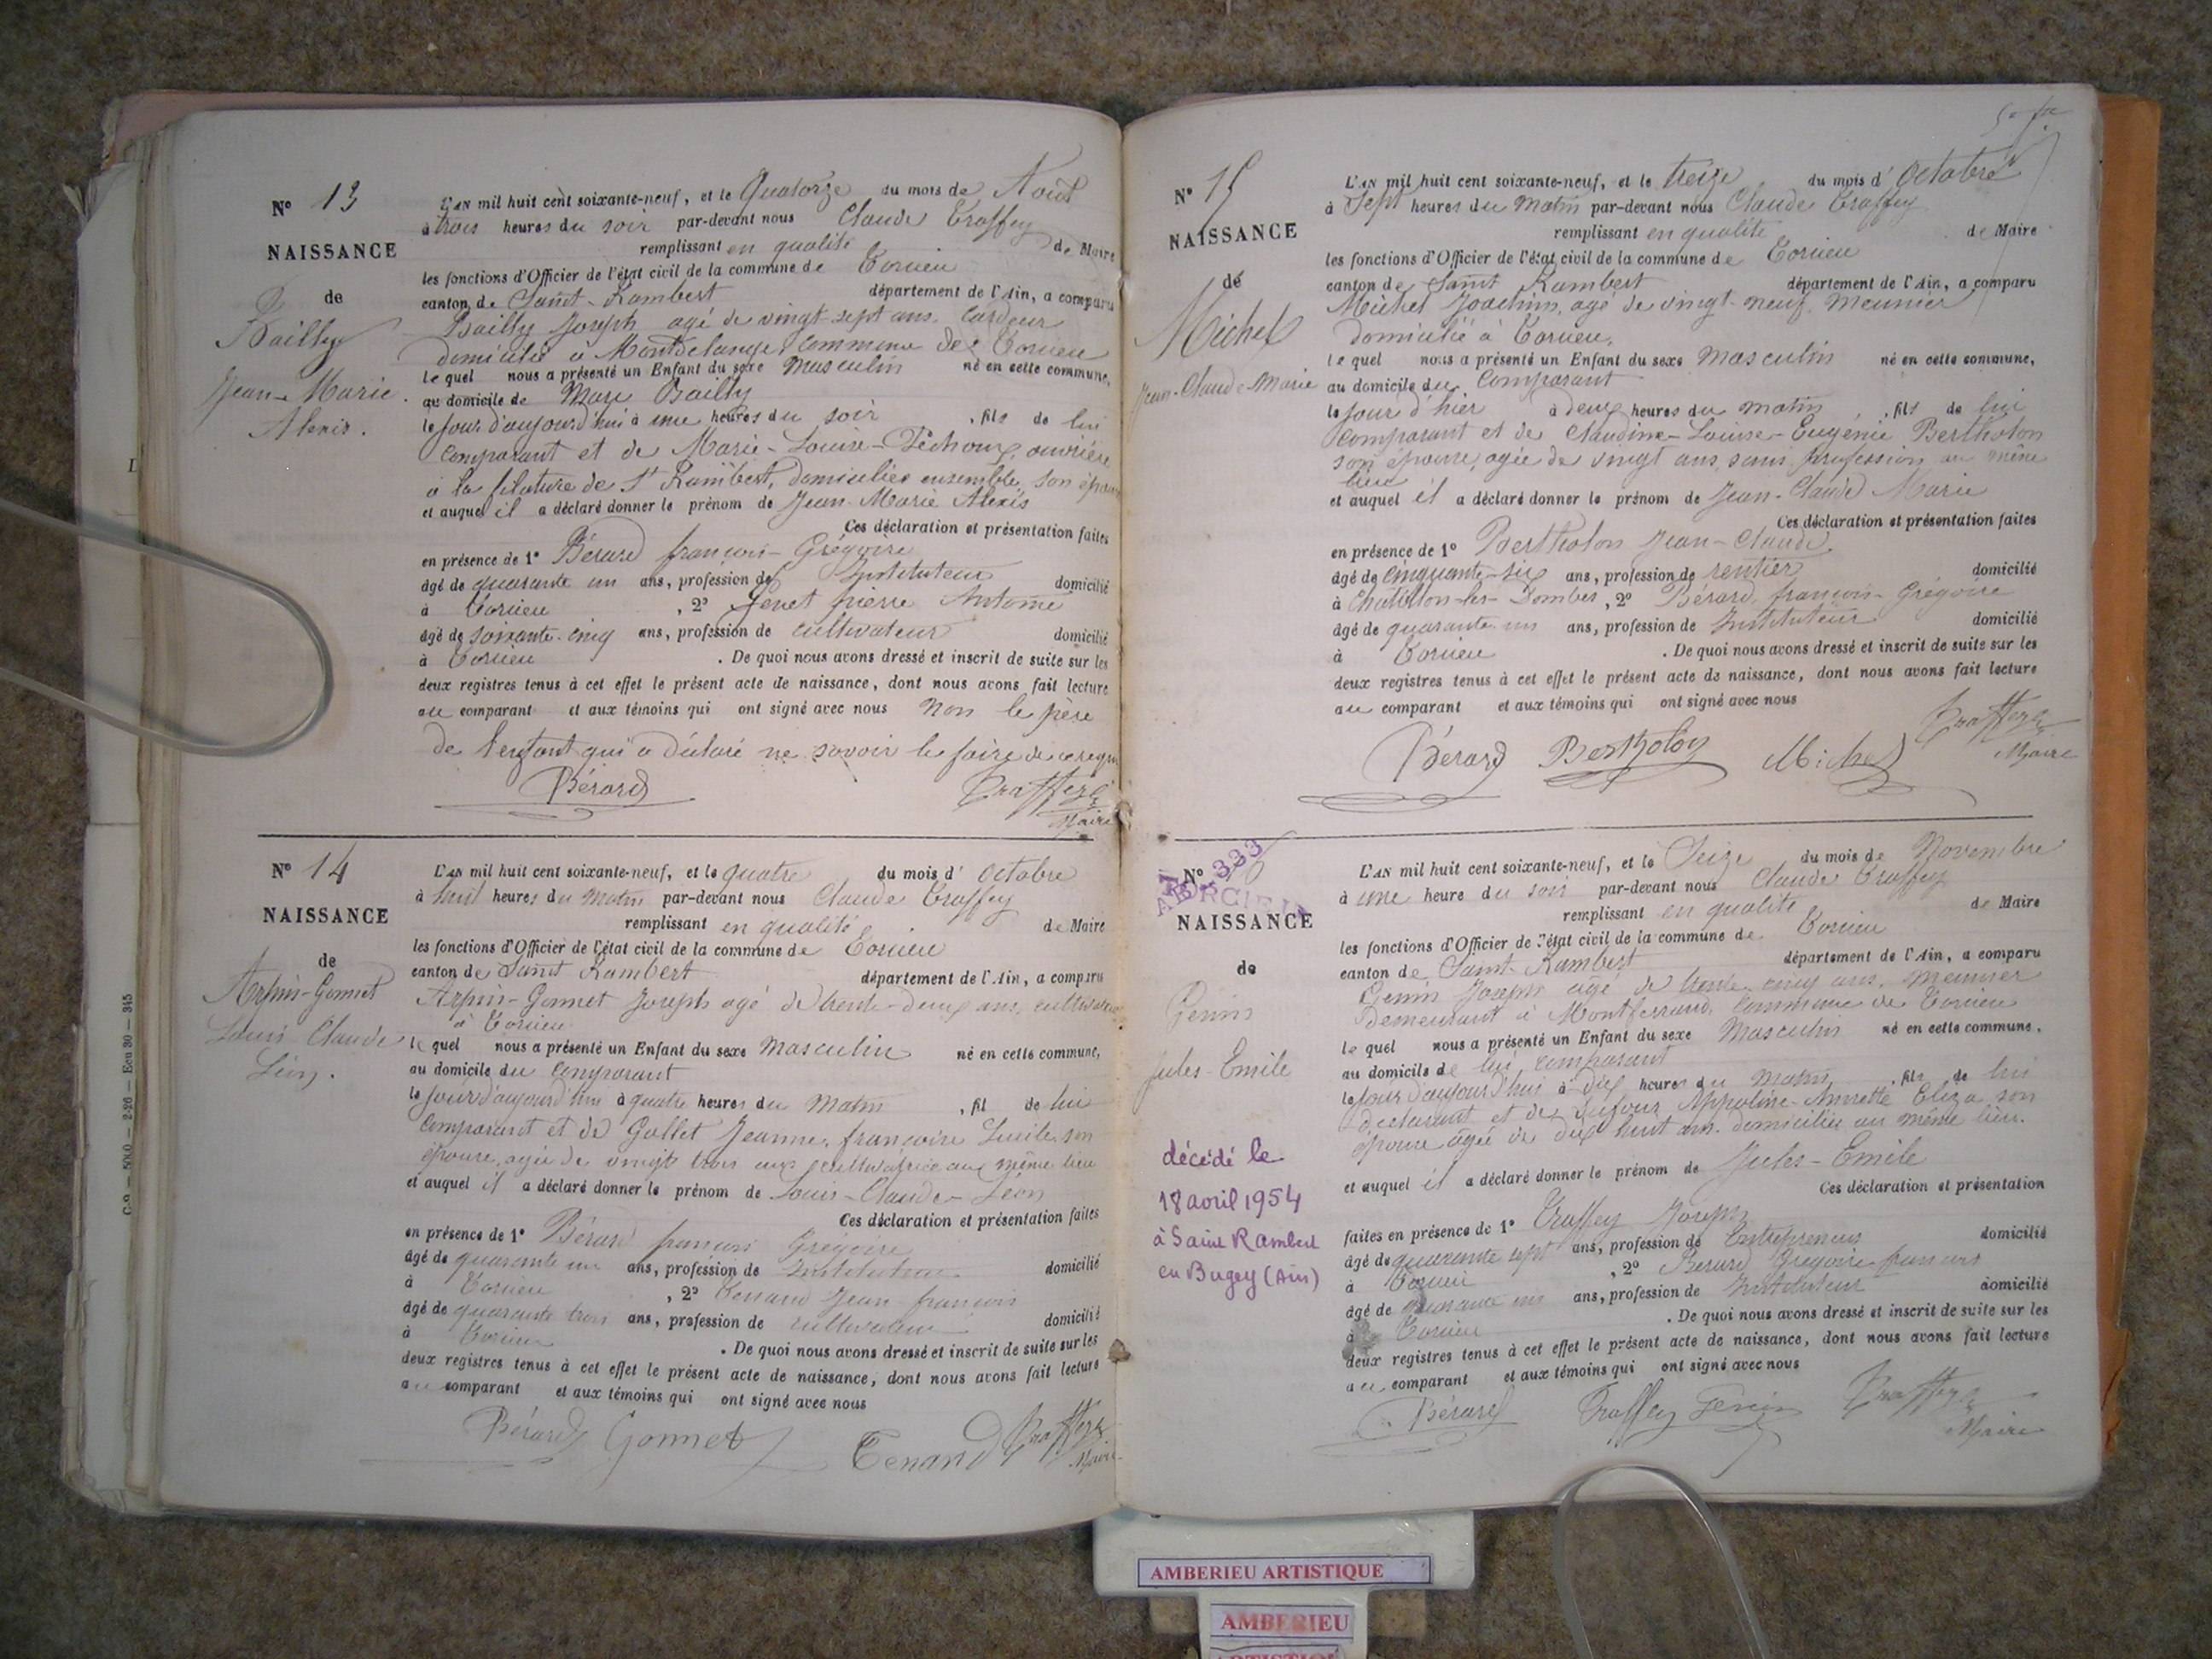 N° 13
NAISSANCE
de
Bailly
Jean-Marie
Alexis.
L'AN mil huit cent soixante-neuf, et le Quatorze du mois de Août
à trois heures du soir par-devant nous Claude Traffey
remplissant en qualité de Maire
les fonctions d'Officier de l'état civil de la commune de Torcieu
canton de Saint-Rambert département de l'Ain, a comparu
Bailly Joseph agé de vingt-sept ans. Cardeur
domicilié à Montdelange, commune de Torcieu
le quel nous a présenté un Enfant du sexe Masculin né en cette commune,
au domicile de Marc Bailly
le Jour d'aujourd'hui à une heures du soir , fils de lui
Comparant et de Marie-Louise-Péchoux, ouvrière
à la filature de St Rambert, domiciliés ensemble, son épouse
et auquel il a déclaré donner le prénom de Jean-Marie Alexis
Ces déclaration et présentation faites
en présence de 1° Bérard françois-Grégoire
âgé de quarante un ans, profession de Instituteur domicilié
à Torcieu , 2° Genet pierre Antoine
âgé de soixante-cinq ans, profession de cultivateur domicilié
à Torcieu . De quoi nous avons dressé et inscrit de suite sur les
deux registres tenus à cet effet le présent acte de naissance, dont nous avons fait lecture
au comparant et aux témoins qui ont signé avec nous Non le père
de l'enfant qui a déclaré ne savoir le faire de ce requis
Bérard Traffey
Maire
N° 14
NAISSANCE
de
Arpin-Gonnet
Louis Claude
Léon.
L'AN mil huit cent soixante-neuf, et le quatre du mois d' Octobre
à huit heures du Matin par-devant nous Claude Traffey
remplissant en qualité de Maire
les fonctions d'Officier de l'état civil de la commune de Torcieu
canton de Saint Rambert département de l'Ain, a comparu
Arpin-Gonnet Joseph agé de trente-deux ans, cultivateur
à Torcieu
le quel nous a présenté un Enfant du sexe Masculin né en cette commune,
au domicile du Comparant
le Jour d'aujourd'hui à quatre heures du Matin , fil de lui
Comparant et de Gallet Jeanne, françoise Lucile, son
épouse, agée de vingt trois ans cultivatrice au même lieu
et auquel il a déclaré donner le prénom de Louis-Claude-Léon
Ces déclaration et présentation faites
en présence de 1° Bérard françois Grégoire
âgé de quarante un ans, profession de Instituteur domicilié
à Torcieu , 2° Tenand Jean françois
âgé de quarante trois ans, profession de cultivateur domicilié
à Torcieu . De quoi nous avons dressé et inscrit de suite sur les
deux registres tenus à cet effet le présent acte de naissance, dont nous avons fait lecture
au comparant et aux témoins qui ont signé avec nous
Bérard Gonnet Tenand Traffey
Maire
C.9 — 500.0 — 2-26 — Ecu 30 — 345
N° 15
NAISSANCE
de
Michel
Jean-Claude-Marie
L'AN mil huit cent soixante-neuf, et le treize du mois d' Octobre
à Sept heures du Matin par-devant nous Claude Traffey
remplissant en qualité de Maire
les fonctions d'Officier de l'état civil de la commune de Torcieu
canton de Saint Rambert département de l'Ain, a comparu
Michel Joachim, agé de vingt-neuf, Meunier
domicilié à Torcieu,
le quel nous a présenté un Enfant du sexe Masculin né en cette commune,
au domicile du Comparant
le Jour d'hier à deux heures du matin , fils de lui
Comparant et de Claudine-Louise-Eugénie Bertholon
son épouse, agée de vingt ans, sans profession au même
lieu
et auquel il a déclaré donner le prénom de Jean-Claude Marie
Ces déclaration et présentation faites
en présence de 1° Bertholon Jean-Claude
âgé de Cinquante-six ans, profession de rentier domicilié
à Chatillon-les-Dombes, 2° Bérard, françois-Grégoire
âgé de quarante-un ans, profession de Instituteur domicilié
à Torcieu . De quoi nous avons dressé et inscrit de suite sur les
deux registres tenus à cet effet le présent acte de naissance, dont nous avons fait lecture
au comparant et aux témoins qui ont signé avec nous
Bérard Bertholon Michel Traffey
Maire
N° 333
NAISSANCE
de
Genin
Jules-Emile
décédé le
18 avril 1954
à Saint Rambert
en Bugey (Ain)
L'AN mil huit cent soixante-neuf, et le Seize du mois de Novembre
à une heure du soir par-devant nous Claude Traffey
remplissant en qualité de Maire
les fonctions d'Officier de l'état civil de la commune de Torcieu
canton de Saint-Rambert département de l'Ain, a comparu
Genin Joseph agé de trente-cinq ans, Meunier
Demeurant à Montferrand, Commune de Torcieu
le quel nous a présenté un Enfant du sexe Masculin né en cette commune,
au domicile de lui comparant
le Jour d'aujourd'hui à dix heures du Matin , fils de lui
déclarant et de Dufour Appoline-Annette Eliza son
épouse âgée de dix huit ans. domiciliée au même lieu.
et auquel il a déclaré donner le prénom de Jules-Emile
Ces déclaration et présentation
faites en présence de 1° Traffey Joseph
âgé de quarante sept ans, profession de Entrepreneur domicilié
à Torcieu , 2° Bérard Grégoire françois
âgé de quarante un ans, profession de Instituteur domicilié
à Torcieu . De quoi nous avons dressé et inscrit de suite sur les
deux registres tenus à cet effet le présent acte de naissance, dont nous avons fait lecture
au comparant et aux témoins qui ont signé avec nous
Bérard Traffey Genin Traffey
Maire
AMBERIEU ARTISTIQUE
AMBERIEU
ARTISTIQUE